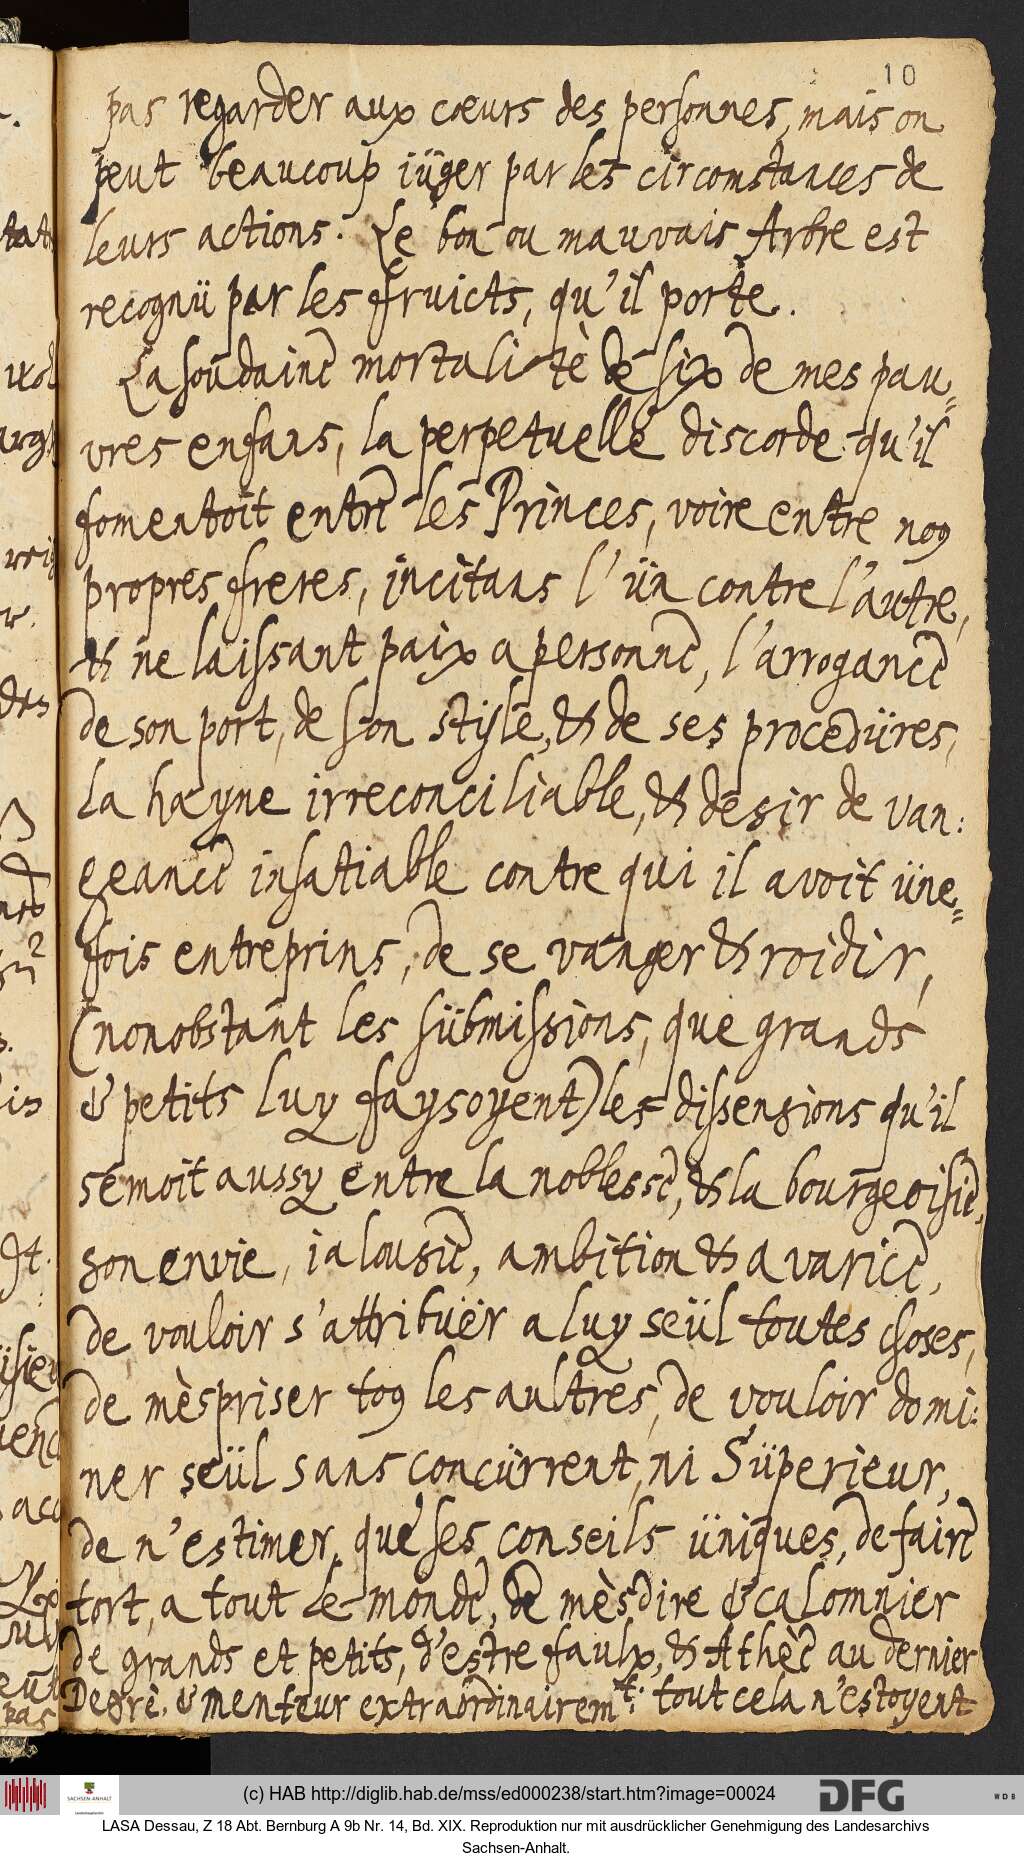 10
pas regarder aux cœurs des personnes, mais on
peut beaucoup iüger par les circomstances de
leurs actions. Le bon ou mauvais Arbre est
recognü par les fruicts, qu'il porte.
La soudaine mortalitè de six de mes pau=
vres enfans, la perpetuelle discorde qu'il
fomentoit entre les Princes, voire entre nos
propres freres, incitans l'ün contre l'autre,
& ne laissant paix a personne, l'arrogance
de son port, de son style, & de ses procedüres,
la hayne irreconciliable, & desir de van:
geance insatiable contre qui il avoit üne=
fois entreprins, de se vanger & roidir,
(nonobstant les sübmissions, que grands
& petits luy faysoyent) les dissensions qu'il
semoit aussy entre la noblesse, & la bourgeoisie,
son envie, ialousie, ambition & avarice,
de vouloir s'attribuër a luy seül toutes choses,
de mèspriser tos les aultres, de vouloir domi:
ner seül sans concürrent, ni Süperieur,
de n'estimer, que ses conseils üniques, de faire
tort, a tout le monde, de mèsdire & calomnier
de grands et petits, d'estre faulx, & Athèe au dernier
Degrè, & menteur extraordinairemt. tout cela n'estoyent
(c) HAB http://diglib.hab.de/mss/ed000238/start.htm?image=00024
SACHSEN-ANHALT
DFG
WDB
LASA Dessau, Z 18 Abt. Bernburg A 9b Nr. 14, Bd. XIX. Reproduktion nur mit ausdrücklicher Genehmigung des Landesarchivs
Sachsen-Anhalt.